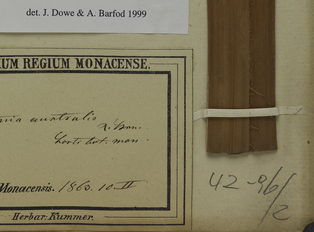 det. J. Dowe & A. Barfod 1999
UM REGIUM MONACENSE.
australis R. Br.
Horti bot. mon.
Monacensis. 1860. 10.II
Herbar. Kummer.
42-96/2